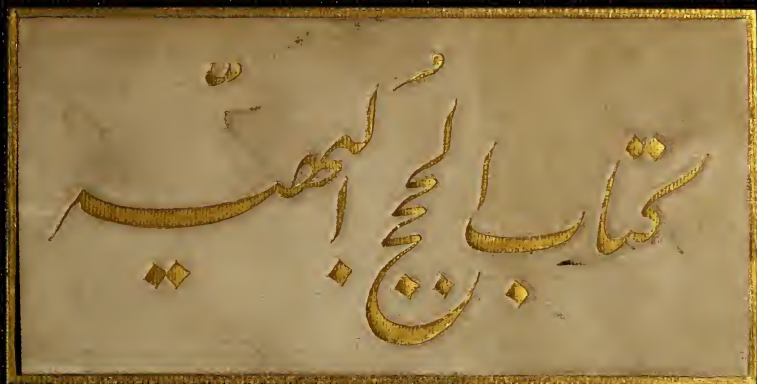 كتاب الحُجج البهيّة